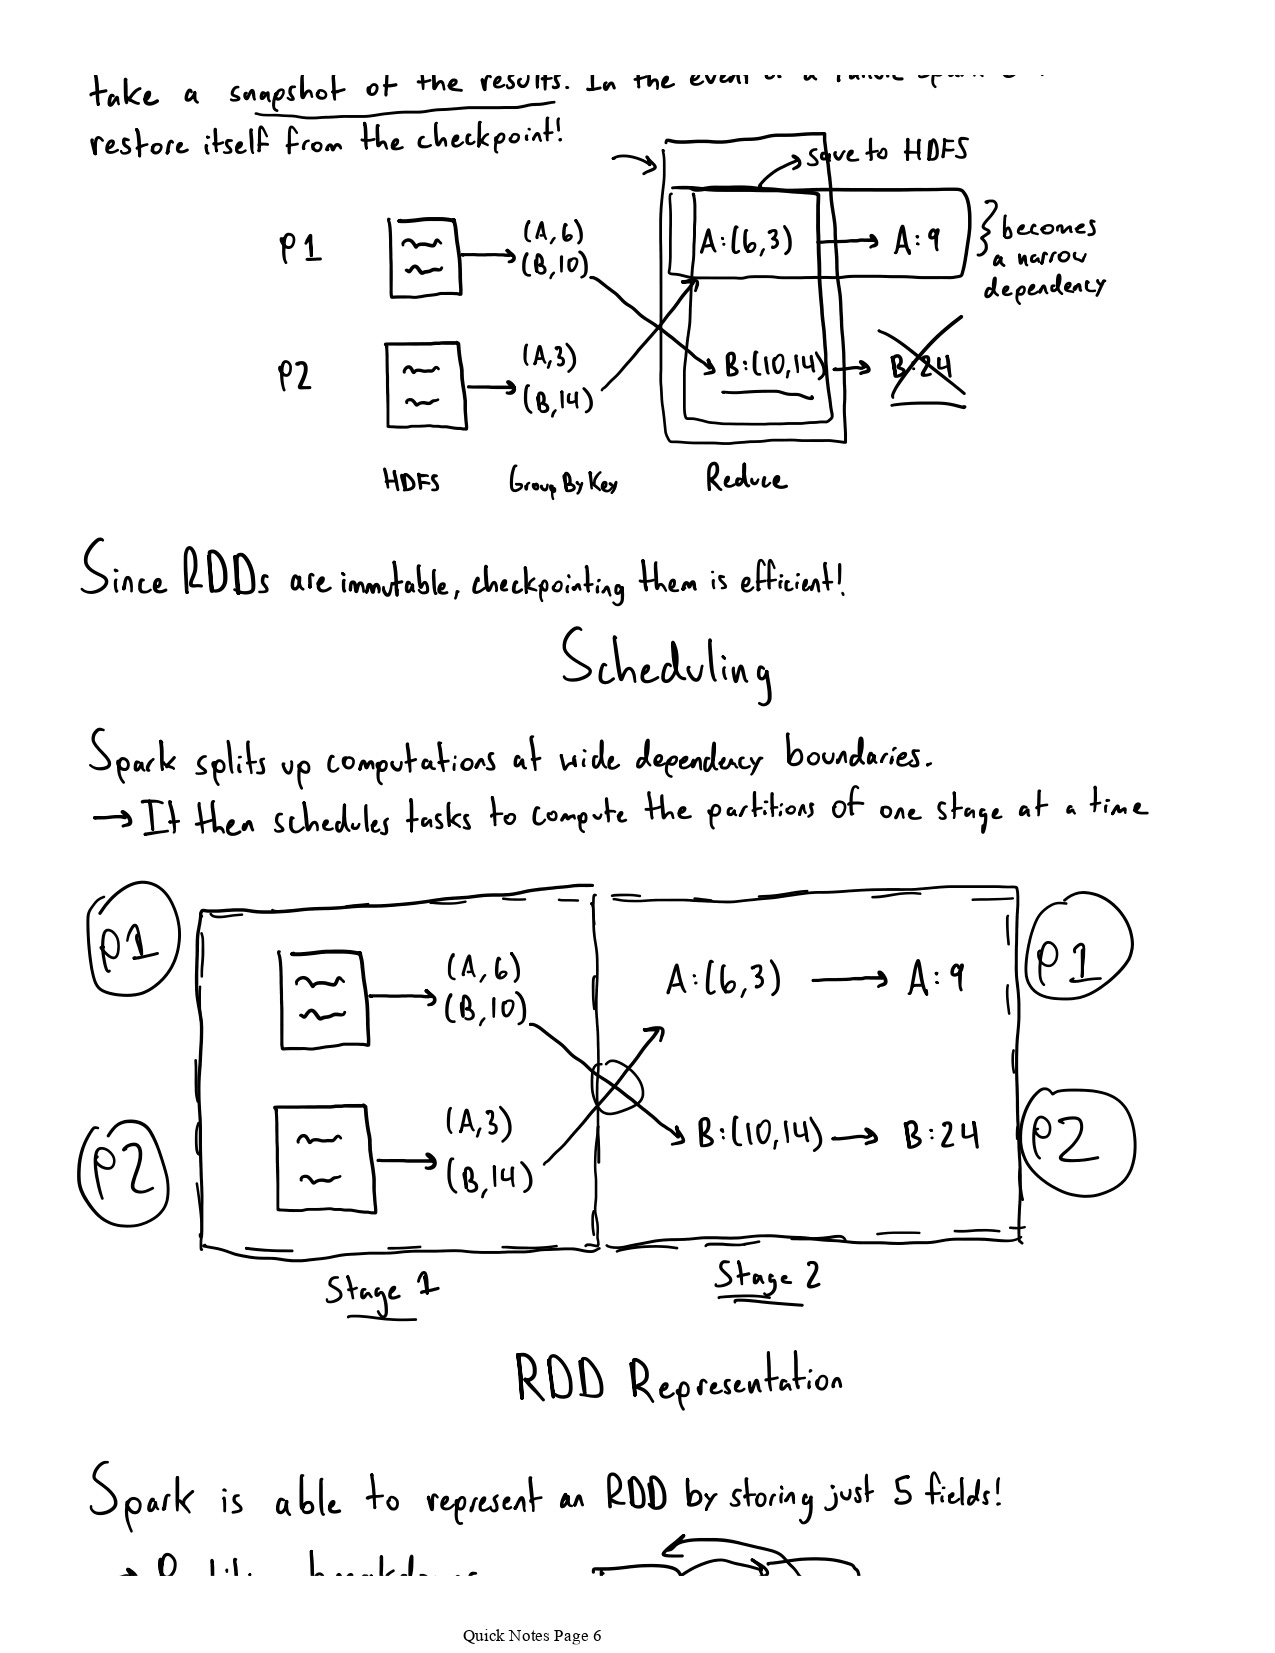 take a snapshot of the results. In the event of a
restore itself from the checkpoint!
save to HDFS
P1
(A,6)
(B,10)
A:(6,3)
A:9
becomes
a narrow
dependency
P2
(A,3)
(B,14)
B:(10,14)
B:24
HDFS
Group By Key
Reduce
Since RDDs are immutable, checkpointing them is efficient!
Scheduling
Spark splits up computations at wide dependency boundaries.
→ It then schedules tasks to compute the partitions of one stage at a time
P1
(A,6)
(B,10)
A:(6,3)
A:9
P1
P2
(A,3)
(B,14)
B:(10,14)
B:24
P2
Stage 1
Stage 2
RDD Representation
Spark is able to represent an RDD by storing just 5 fields!
Quick Notes Page 6